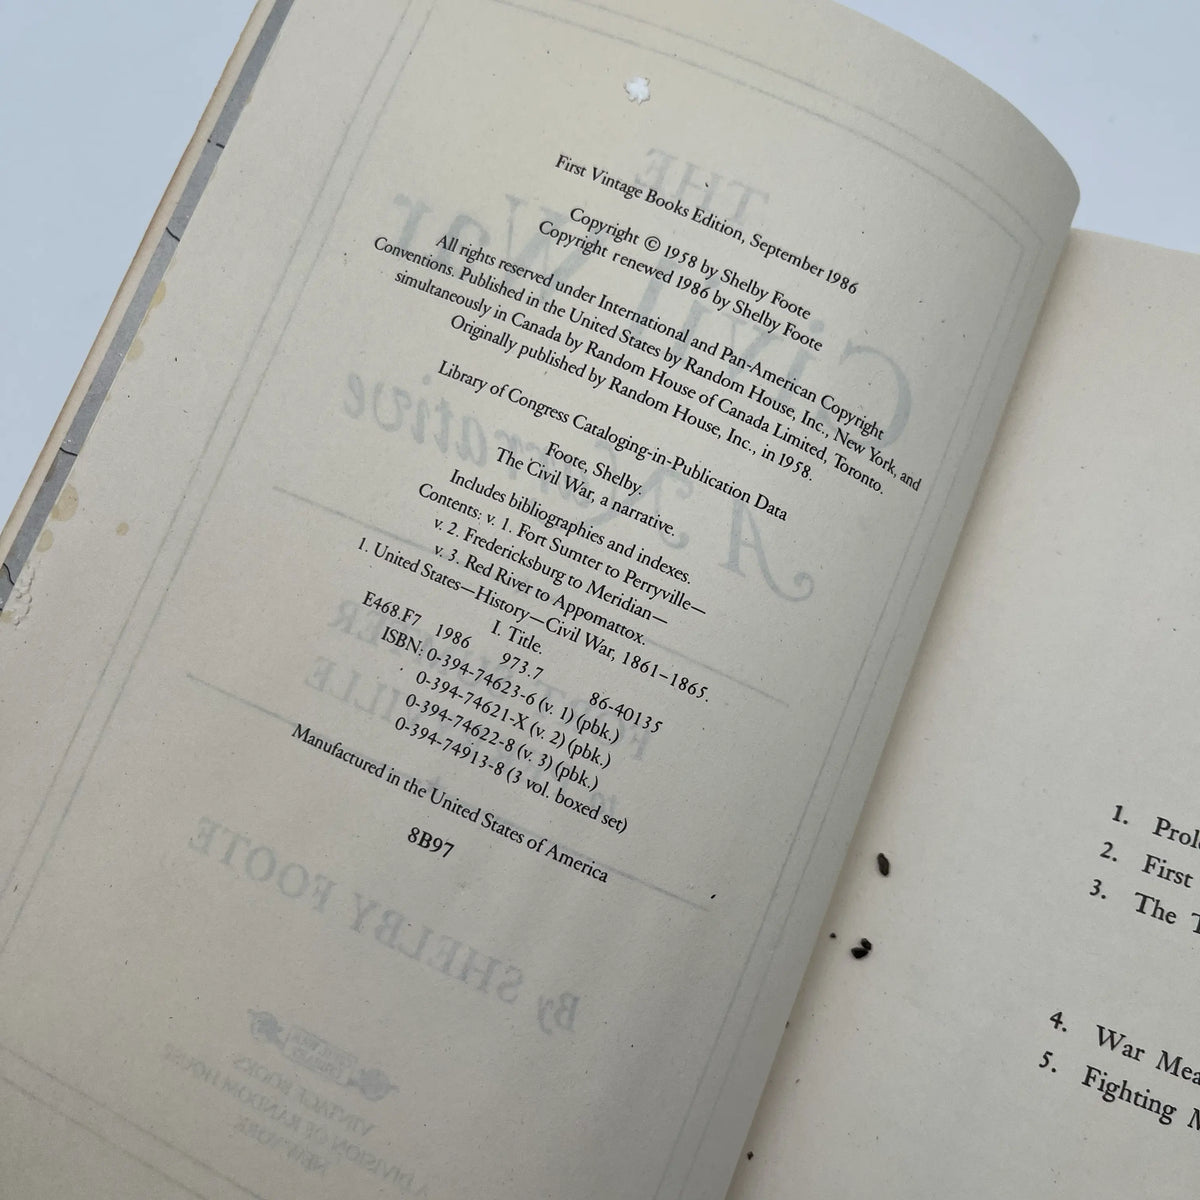 First Vintage Books Edition, September 1986
Copyright © 1958 by Shelby Foote
Copyright renewed 1986 by Shelby Foote
All rights reserved under International and Pan-American Copyright
Conventions. Published in the United States by Random House, Inc., New York, and
simultaneously in Canada by Random House of Canada Limited, Toronto.
Originally published by Random House, Inc., in 1958.
Library of Congress Cataloging-in-Publication Data
Foote, Shelby.
The Civil War, a narrative.
Includes bibliographies and indexes.
Contents: v. 1. Fort Sumter to Perryville—
v. 2. Fredericksburg to Meridian—
v. 3. Red River to Appomattox.
1. United States—History—Civil War, 1861–1865.
I. Title.
E468.F7 1986 973.7 86-40135
ISBN: 0-394-74623-6 (v. 1) (pbk.)
0-394-74621-X (v. 2) (pbk.)
0-394-74622-8 (v. 3) (pbk.)
0-394-74913-8 (3 vol. boxed set)
Manufactured in the United States of America
8B97
THE
Civil War
A Narrative
By SHELBY FOOTE
VINTAGE BOOKS
A DIVISION OF RANDOM HOUSE
NEW YORK
1.
2. First
3. The
4. War
5. Fighting